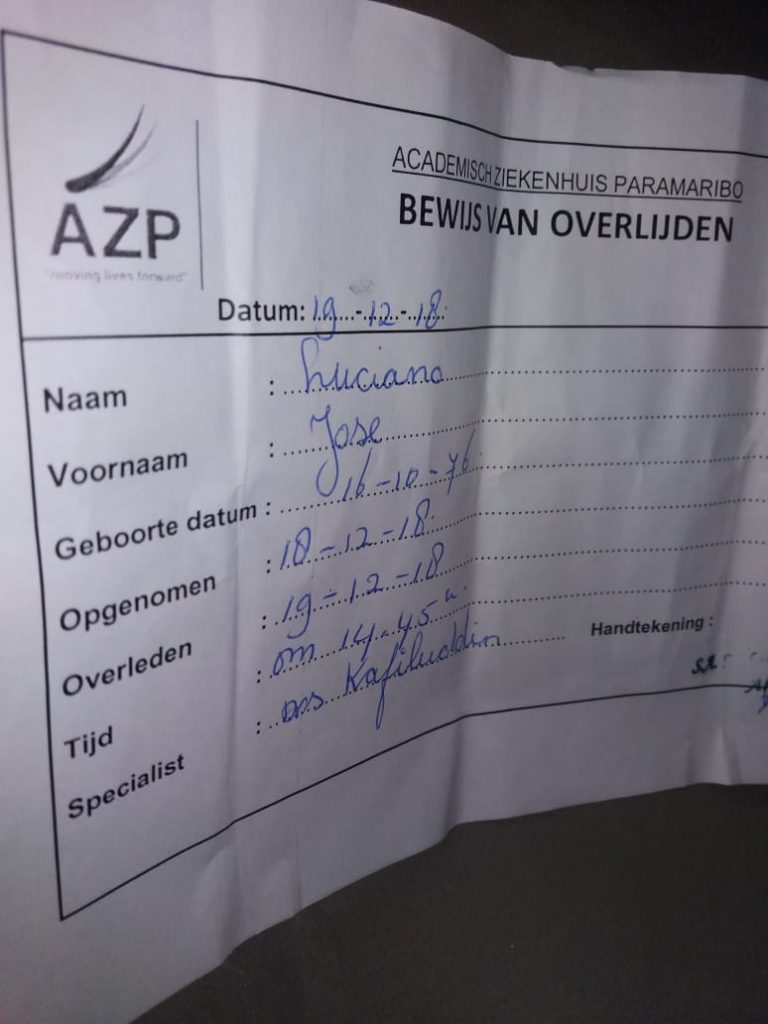 AZP
"moving lives forward"
ACADEMISCH ZIEKENHUIS PARAMARIBO
BEWIJS VAN OVERLIJDEN
Datum: 19-12-18
Naam : Luciano
Voornaam : Jose
Geboorte datum : 16-10-76
Opgenomen : 18-12-18
Overleden : 19-12-18
Tijd : om 14.45 u.
Specialist : drs Kafiluddin
Handtekening :